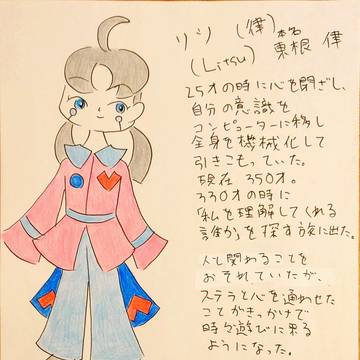 リツ (律) 本名
(Litsu) 東根 律
25才の時に心を閉ざし、
自分の意識を
コンピューターに移し
全身を機械化して
引きこもっていた。
現在 350才。
330才の時に
「私を理解してくれる
誰か」を探す旅に出た。
人と関わることを
おそれていたが、
ステラと心を通わせた
ことがきっかけで
時々遊びに来る
ようになった。